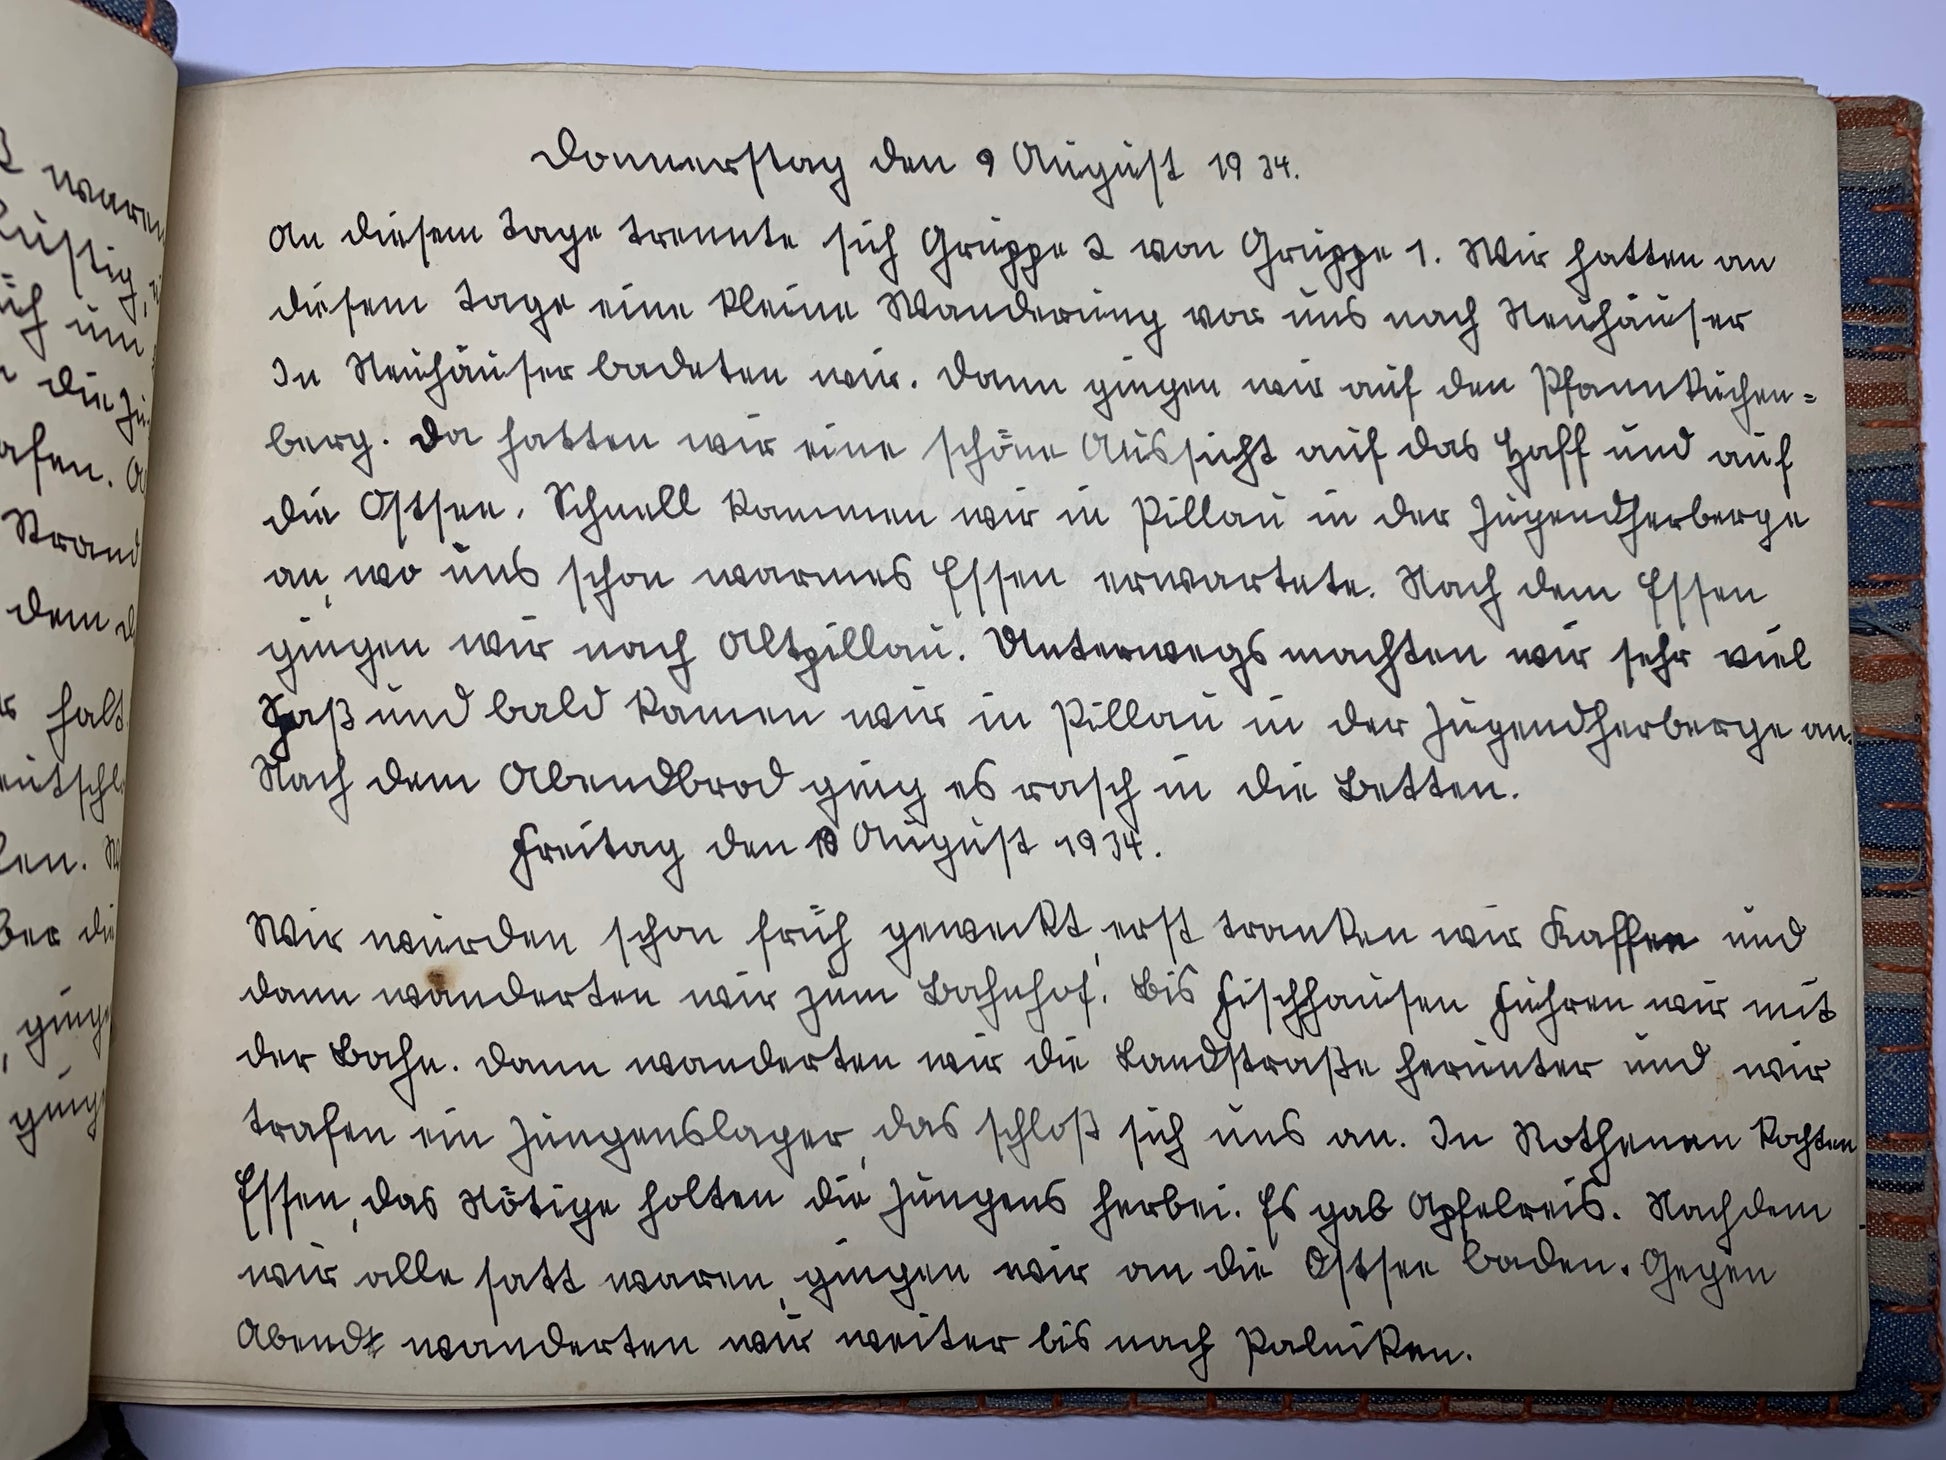 Donnerstag den 9 August 1934.
An diesem Tage trennte sich Gruppe 2 von Gruppe 1. Wir hatten an
diesem Tage eine kleine Wanderung vor uns nach Neuhäuser
In Neuhäuser badeten wir. Dann gingen wir auf den Pfannkuchen=
berg. Da hatten wir eine schöne Aussicht auf das Haff und auf
die Ostsee. Schnell kammen wir in Pillau in der Jugendherberge
an, wo uns schon warmes Essen erwartete. Nach dem Essen
gingen wir nach Altpillau. Unterwegs machten wir sehr viel
Spaß und bald kamen wir in Pillau in der Jugendherberge an.
Nach dem Abendbrod ging es rasch in die Betten.
Freitag den 10 August 1934.
Wir wurden schon früh geweckt, erst tranken wir Kaffee und
dann wanderten wir zum Bahnhof. Bis Fischhausen fuhren wir mit
der Bahn. Dann wanderten wir die Landstraße herunter und wir
trafen ein Jungenslager, das schloß sich uns an. In Rothenen kochten
Essen, das Nötige holten die Jungens herbei. Es gab Apfelreis. Nachdem
wir alle satt waren, gingen wir an die Ostsee baden. Gegen
Abend wanderten wir weiter bis nach Palmiken.